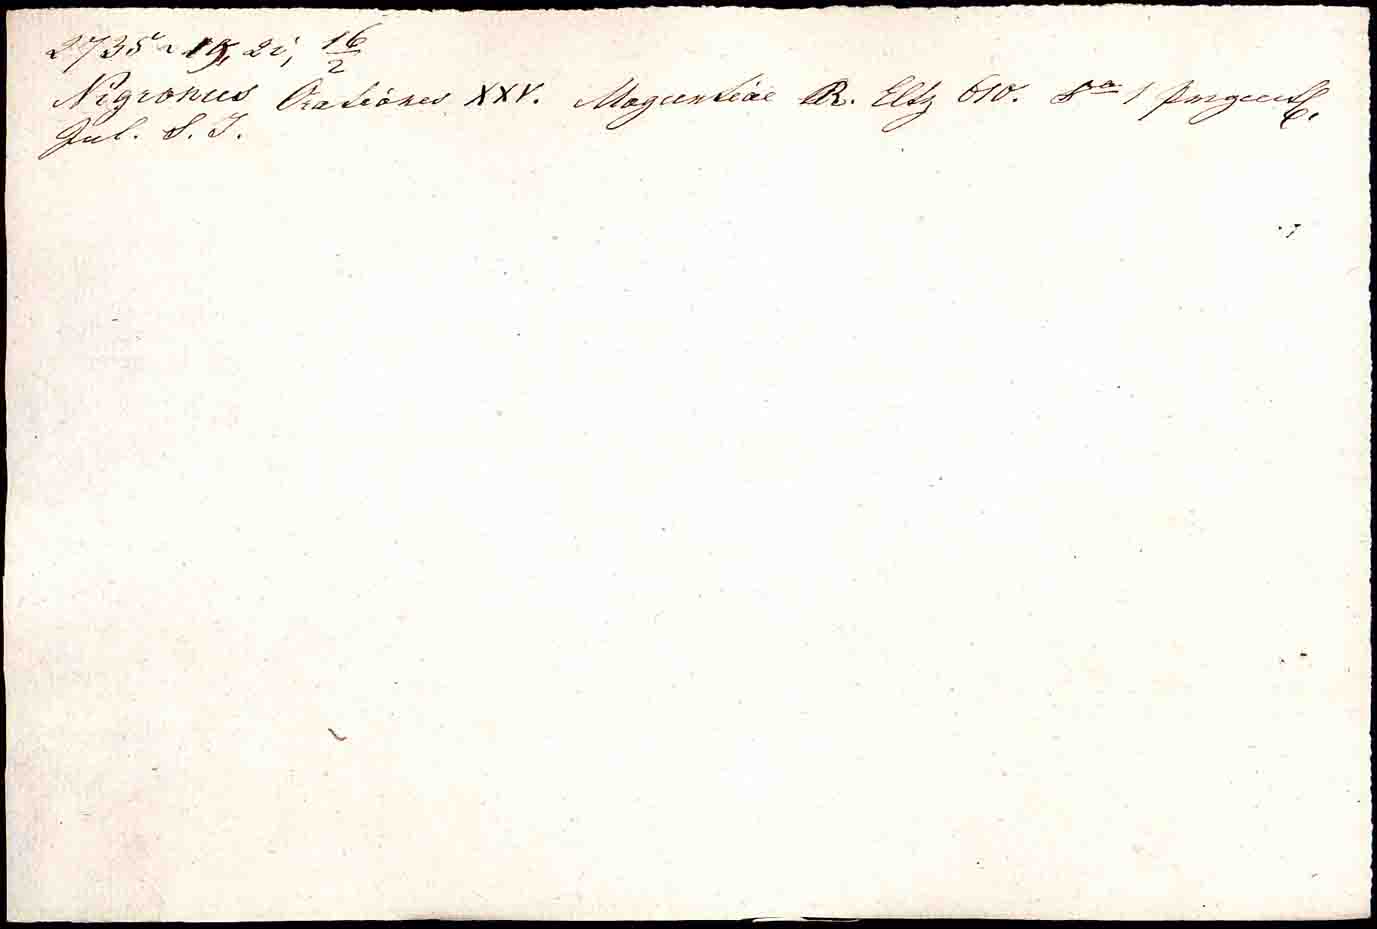 2735 19, 2i, 16/2
Nigronus Orationes XXV. Moguntiae R. Eltz 610. 8° 1 pergm.
Jul. S. J.